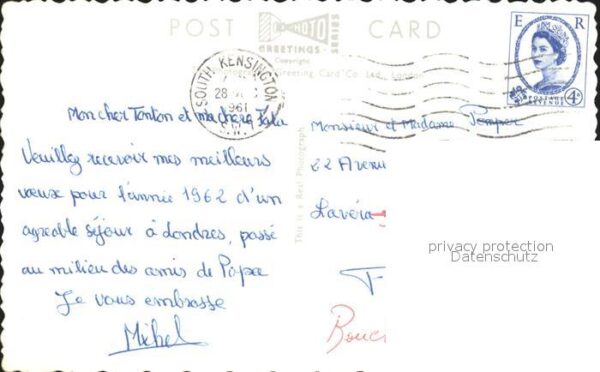 POST CARD
PHOTO
GREETINGS
SERIES
Copyright
Greeting Card Co Ltd., London
SOUTH KENSINGTON
28
1961
S.W.
E R
POSTAGE
REVENUE
4D
Mon cher Tonton et ma chère Tata
Veuillez recevoir mes meilleurs
vœux pour l'année 1962 d'un
agréable séjour à Londres, passé
au milieu des amis de Papa
Je vous embrasse
Michel
This is a Real Photograph
Monsieur et Madame
22 Avenu
Lavéra
F
Bouc
privacy protection
Datenschutz